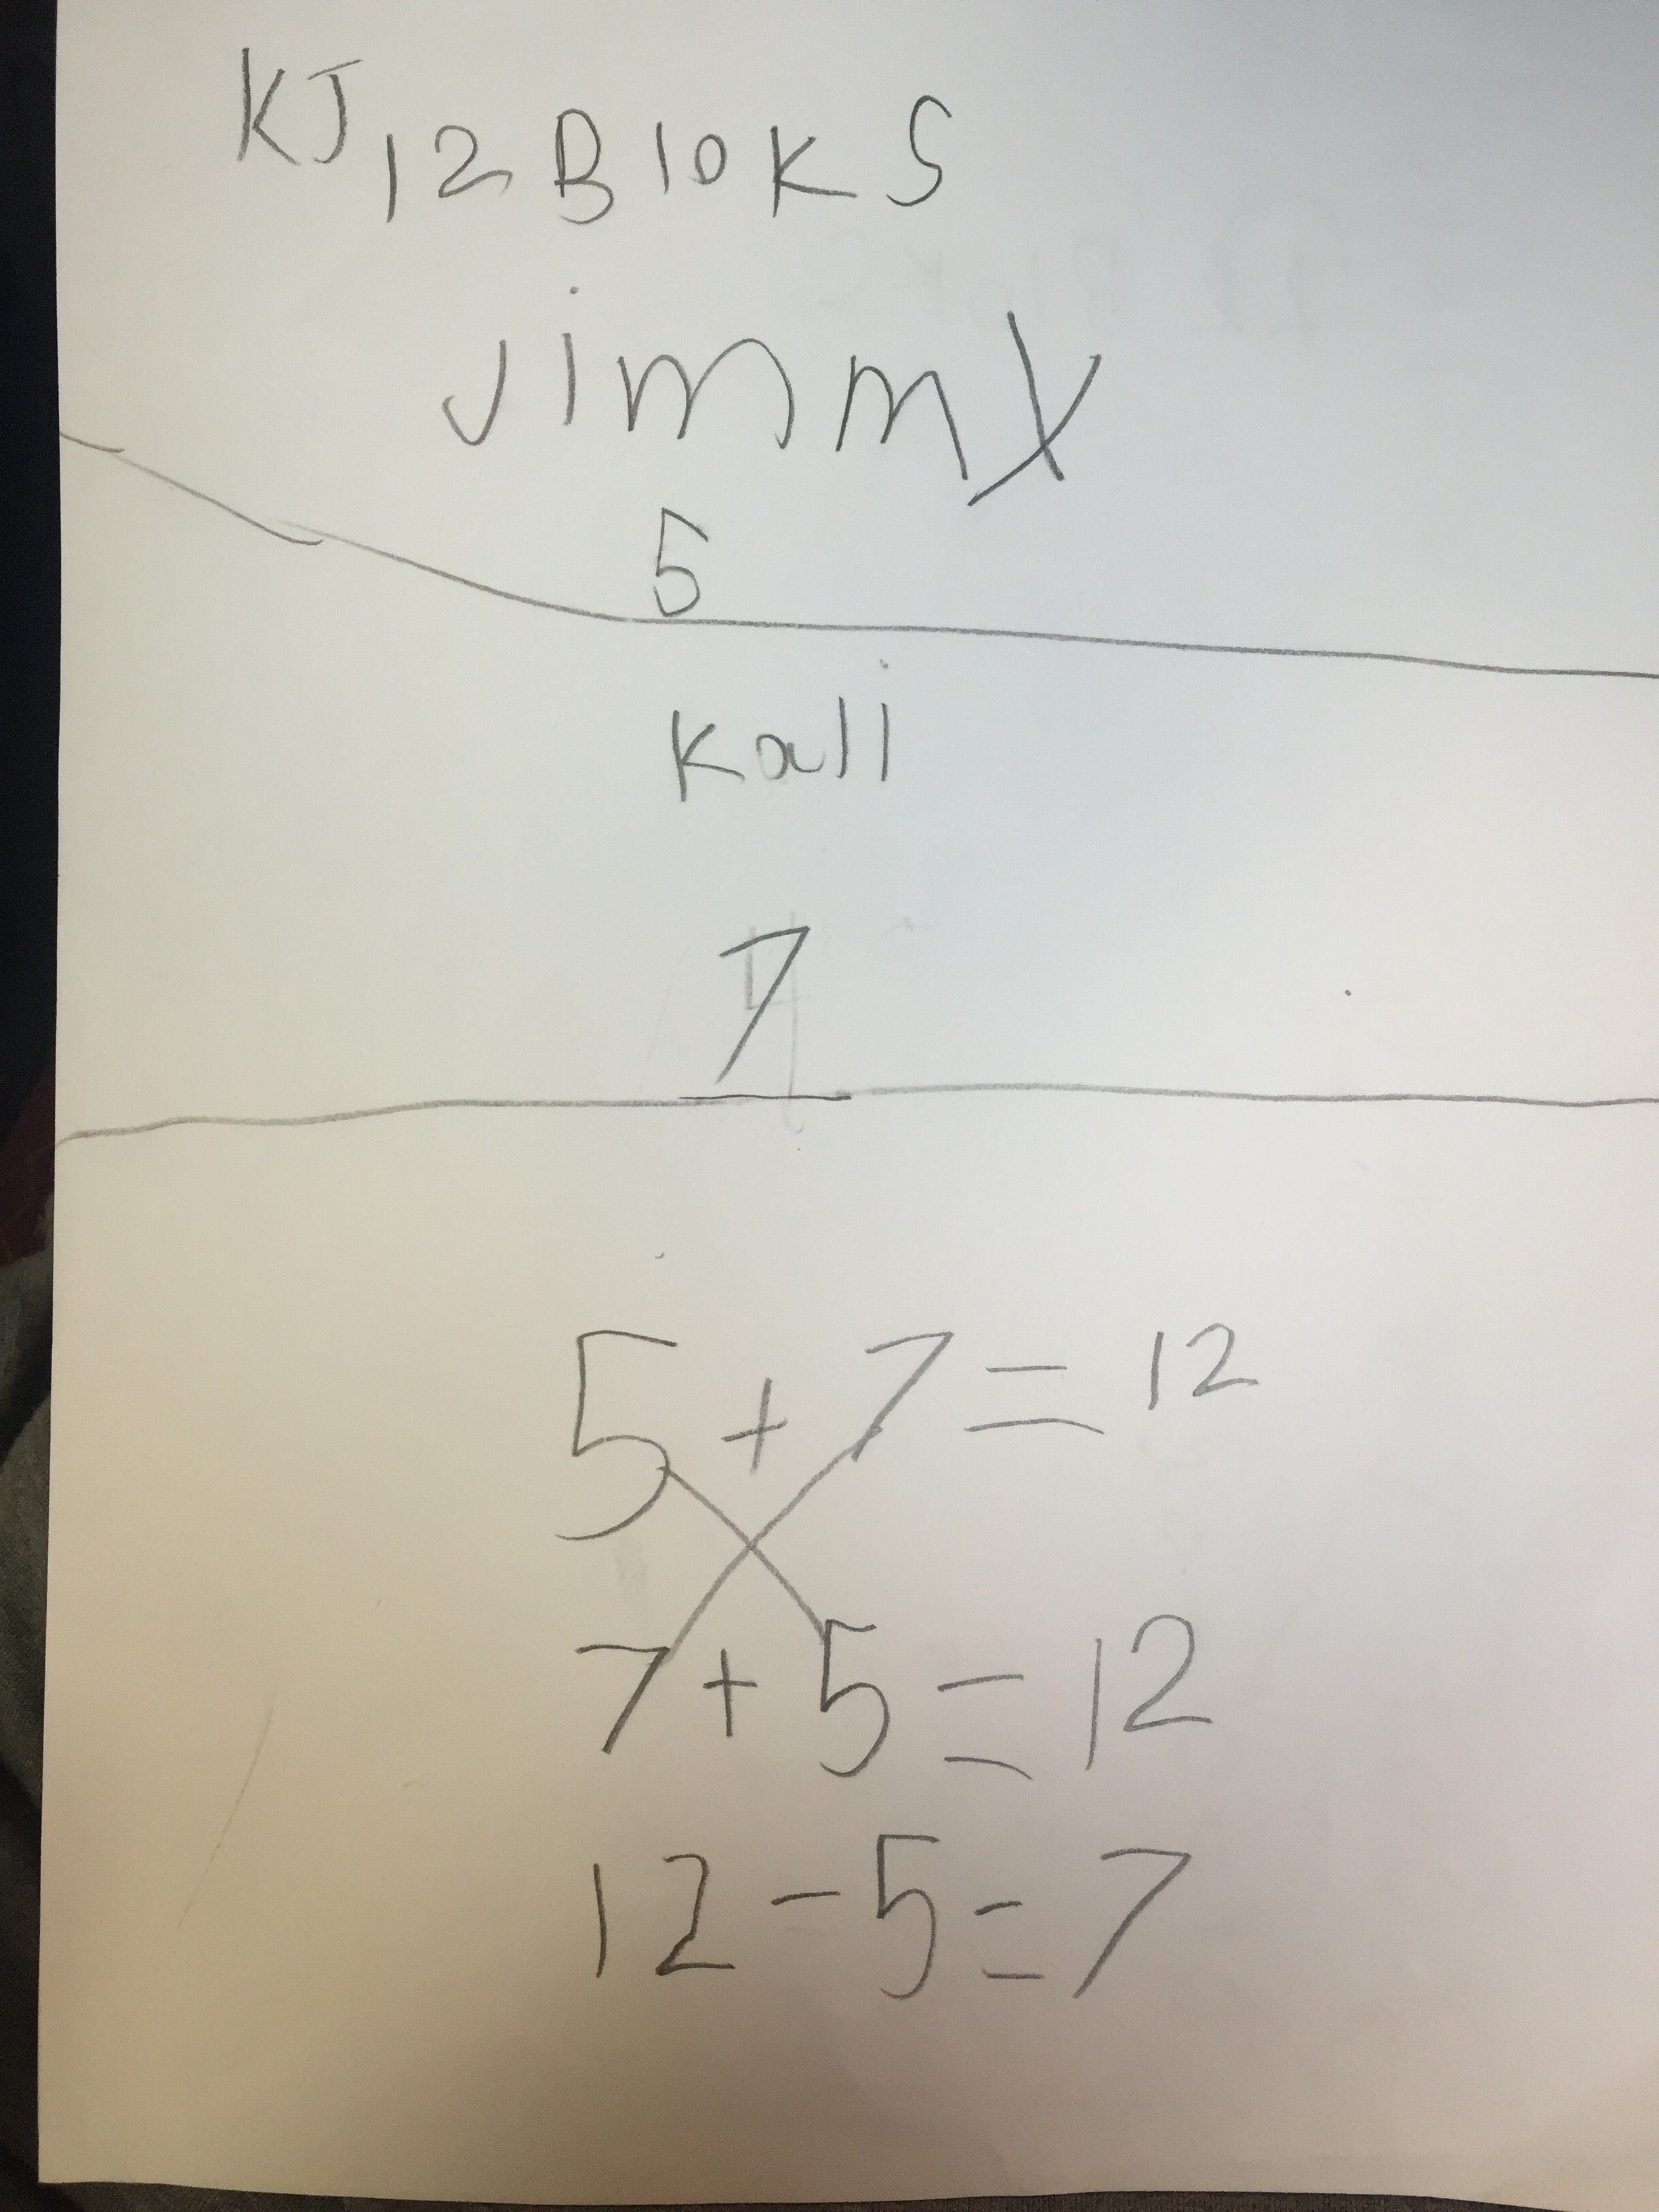 KJ 12 BloKS
Jimmy
5
Kali
7
5 + 7 = 12
7 + 5 = 12
12 - 5 = 7